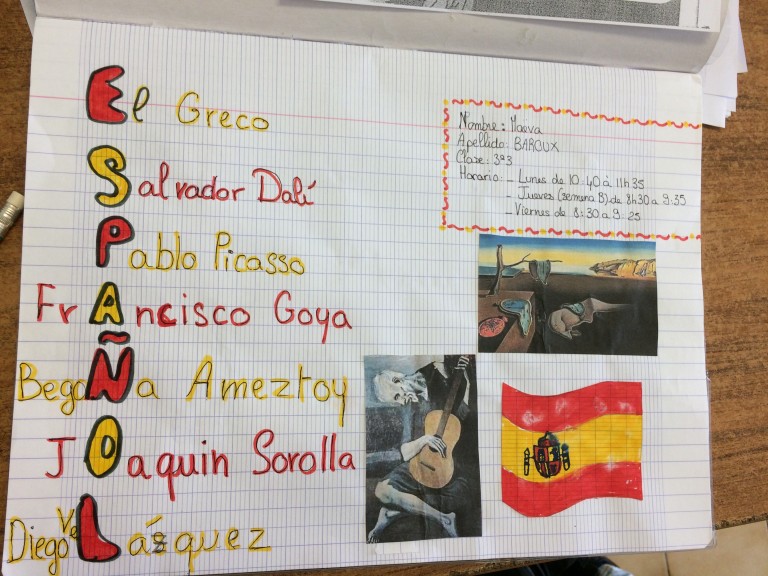 El Greco
Salvador Dalí
Pablo Picasso
FrAncisco Goya
BegoÑa Ameztoy
JOaquin Sorolla
Diego VeLázquez
Nombre: Maeva
Apellido: BAROUX
Clase: 3ª3
Horario: - Lunes de 10:40 à 11h35
- Jueves (semena B) de 8h30 a 9:35
- Viernes de 8:30 a 9:25